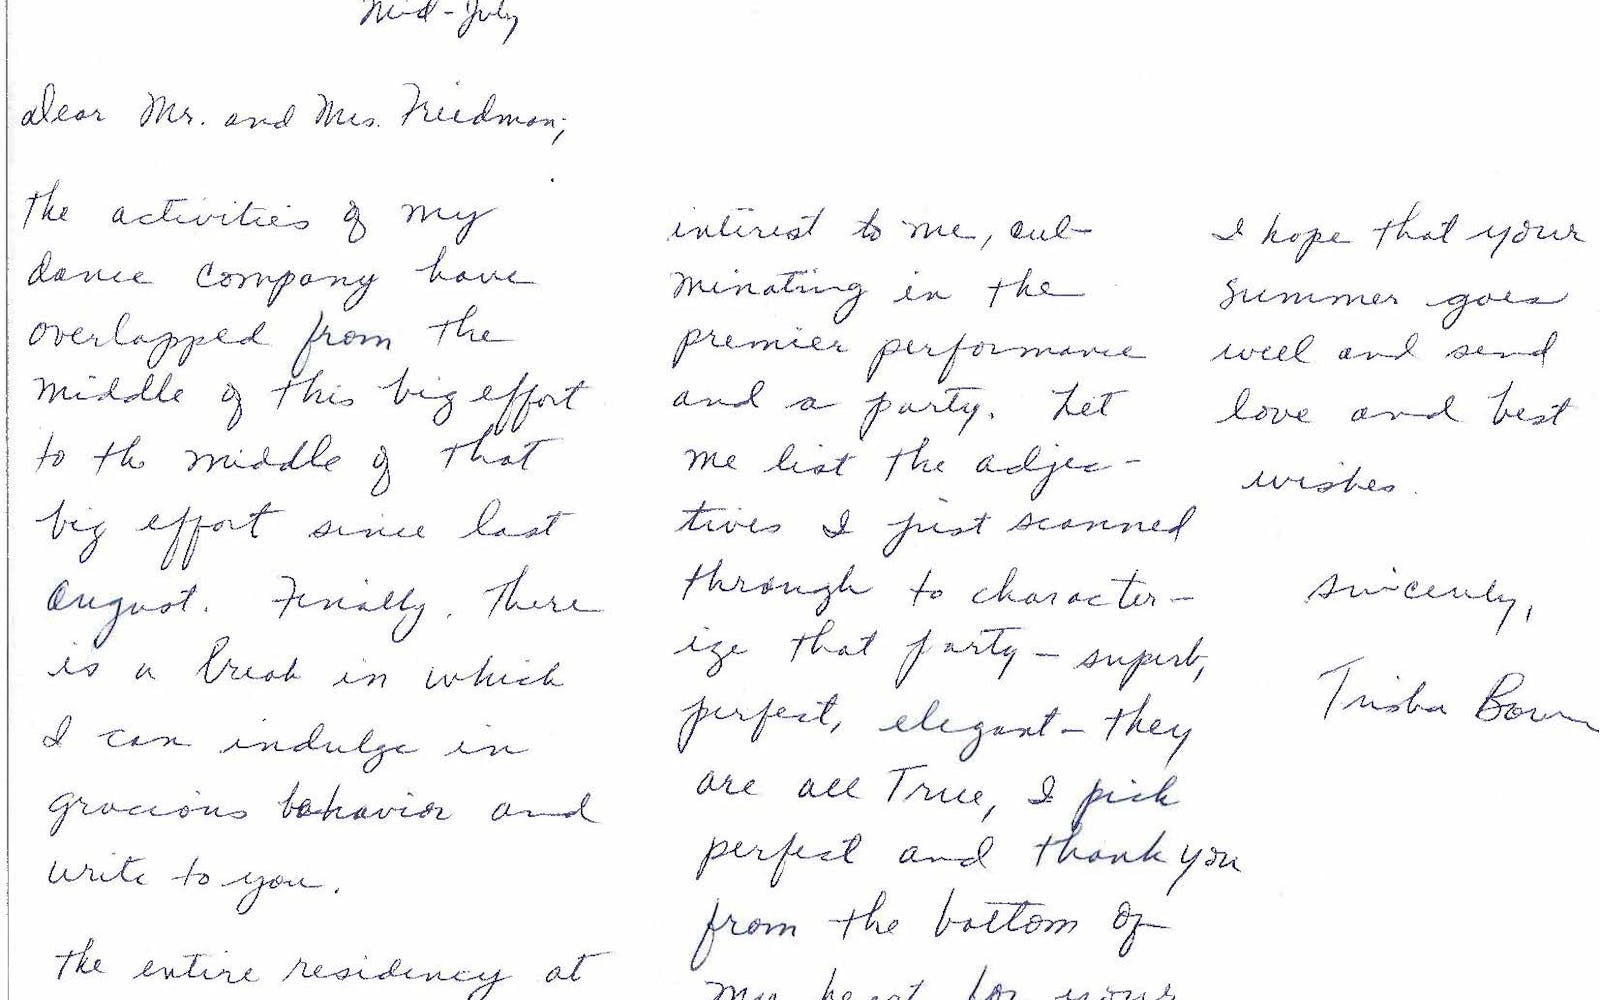 Mid-July
Dear Mr. and Mrs. Friedman;
The activities of my
dance company have
overlapped from the
middle of this big effort
to th middle of that
big effort since last
August. Finally, there
is a break in which
I can indulge in
gracious behavior and
write to you.
The entire residency at
interest to me, cul-
minating in the
premier performance
and a party. Let
me list the adjec-
tives I just scanned
through to character-
ize that party - superb,
perfect, elegant - they
are all true, I pick
perfect and thank you
from the bottom of
my heart for your
I hope that your
summer goes
well and send
love and best
wishes.
Sincerely,
Trisha Brown